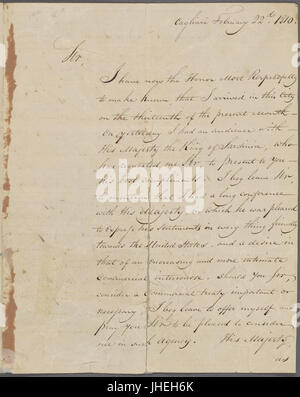 Cagliari February 22d. 1816.
Sir,
I have now the Honor Most Respectfully
to make known that I arrived in this City
on the thirteenth of the present month —
On yesterday I had an audience with —
His Majesty the King of Sardinia, who
has requested me Sir, to present to you
his best compliments. I beg leave Sir
to mention that I had a long conference
with His Majesty in which he was pleased
to express his sentiments in very friendly
towards the United States, and a desire in
that of an encreasing and more intimate
Commercial intercourse. Should you Sir,
consider a Commercial treaty important or
necessary I beg leave to offer myself and
pray you Sir to be pleased to consider
me in such Agency. His Majesty
as
alamy
Image ID: JHEH6K
www.alamy.com